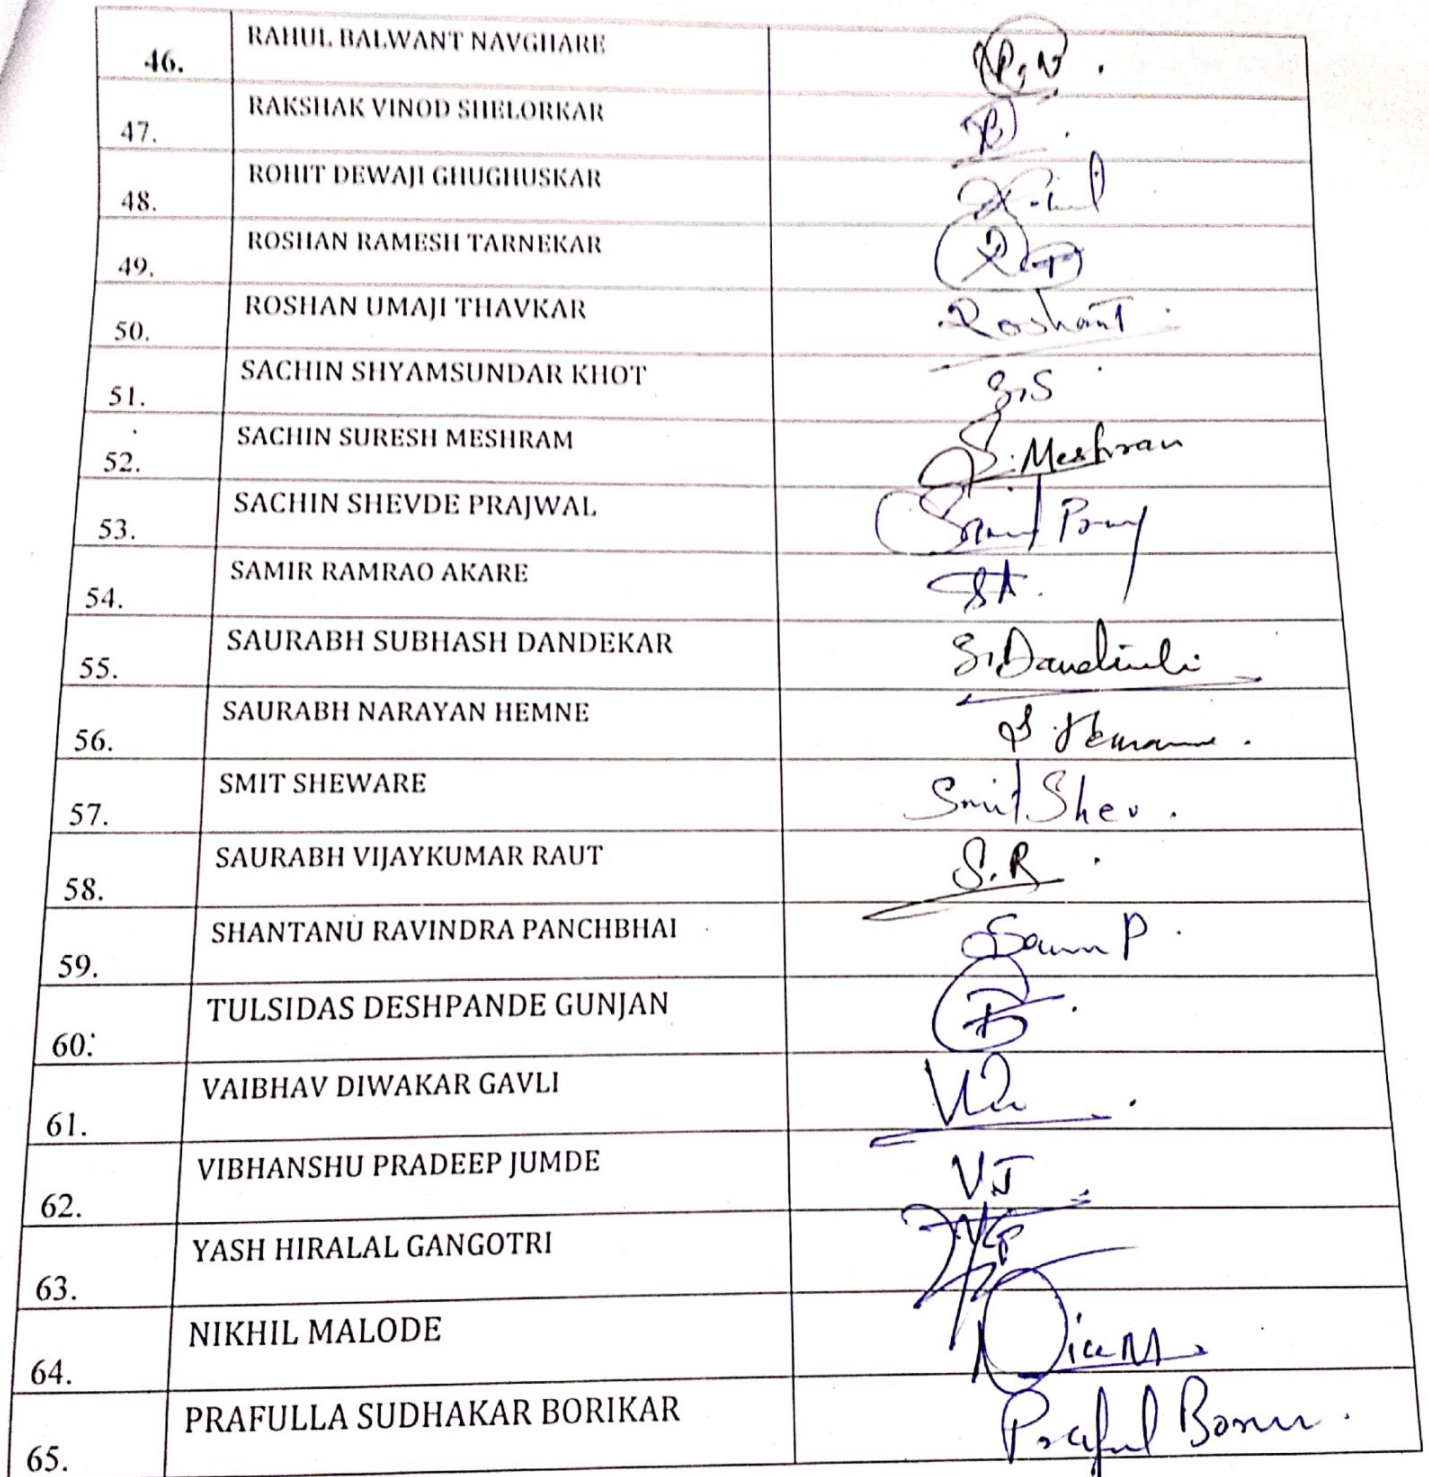 46. RAHUL BALWANT NAVGHARE R.N.
47. RAKSHAK VINOD SHELORKAR
48. ROHIT DEWAJI GHUGHUSKAR
49. ROSHAN RAMESH TARNEKAR RT
50. ROSHAN UMAJI THAVKAR RoshanT
51. SACHIN SHYAMSUNDAR KHOT S.S
52. SACHIN SURESH MESHRAM S.Meshram
53. SACHIN SHEVDE PRAJWAL
54. SAMIR RAMRAO AKARE SA.
55. SAURABH SUBHASH DANDEKAR
56. SAURABH NARAYAN HEMNE
57. SMIT SHEWARE Smit Shev.
58. SAURABH VIJAYKUMAR RAUT S.R.
59. SHANTANU RAVINDRA PANCHBHAI
60. TULSIDAS DESHPANDE GUNJAN
61. VAIBHAV DIWAKAR GAVLI
62. VIBHANSHU PRADEEP JUMDE VJ
63. YASH HIRALAL GANGOTRI
64. NIKHIL MALODE
65. PRAFULLA SUDHAKAR BORIKAR Praful